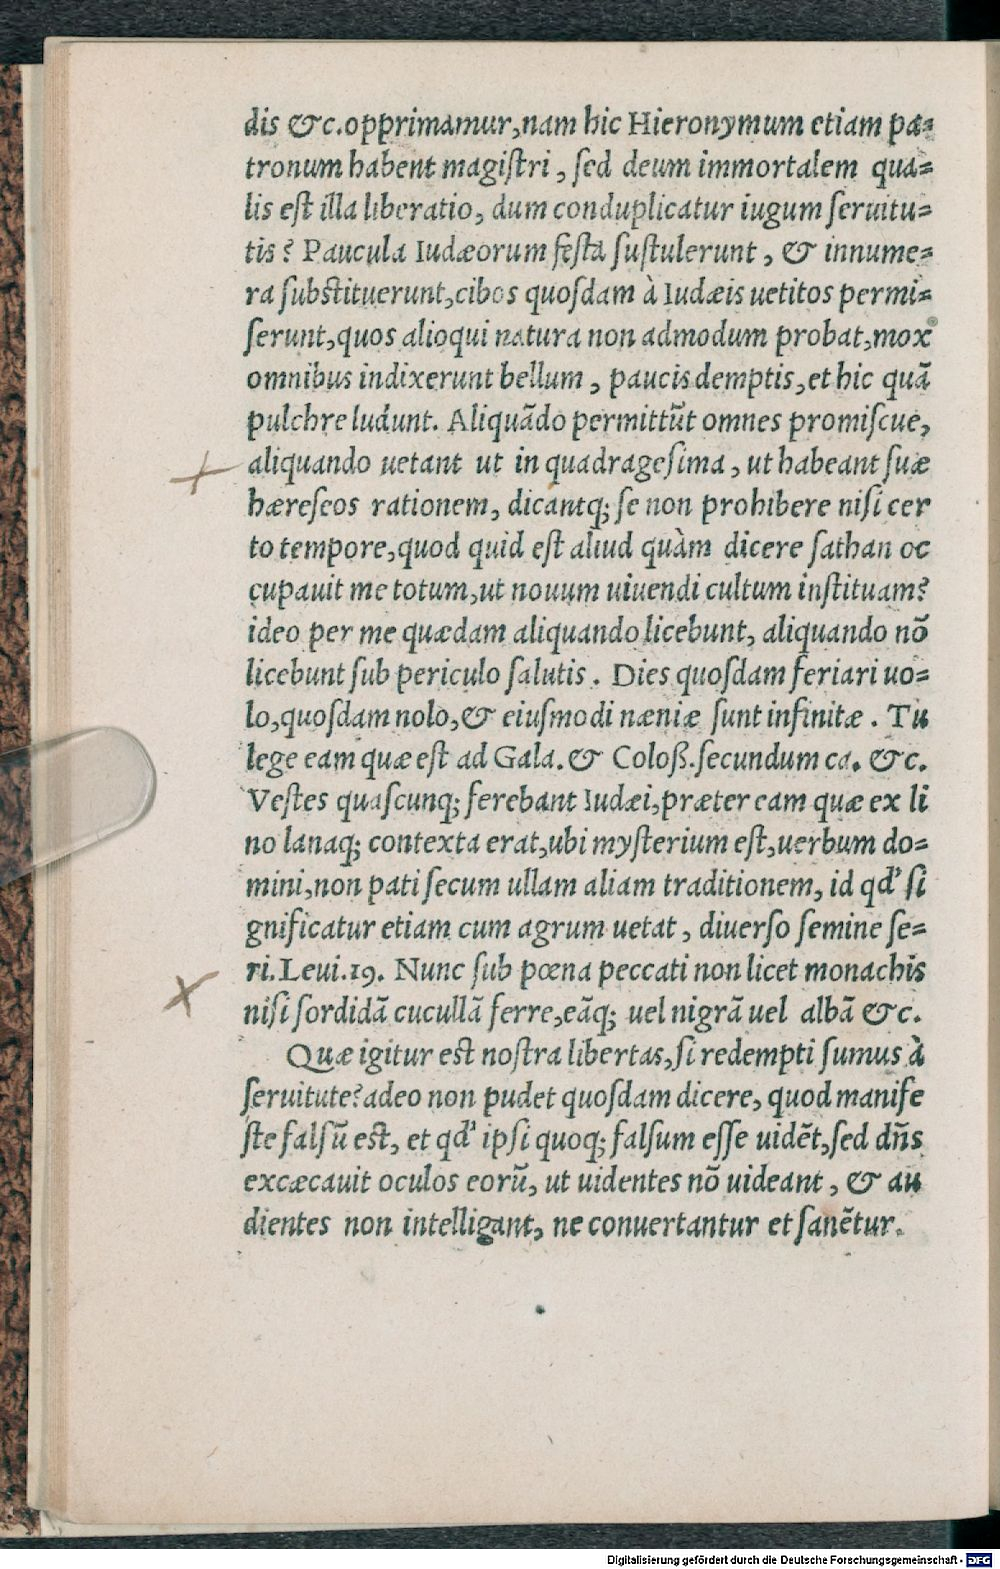 dis &c.opprimamur,nam hic Hieronymum etiam pa=
tronum habent magiſtri, ſed deum immortalem qua=
lis eſt illa liberatio, dum conduplicatur iugum ſeruitu=
tis? Paucula Iudæorum feſta ſuſtulerunt, & innume=
ra ſubſtituerunt,cibos quoſdam à Iudæis uetitos permi=
ſerunt,quos alioqui natura non admodum probat,mox
omnibus indixerunt bellum, paucis demptis,et hic quã
pulchre ludunt. Aliquãdo permittũt omnes promiſcue,
aliquando uetant ut in quadrageſima, ut habeant ſuæ
hæreſeos rationem, dicantq; ſe non prohibere niſi cer
to tempore,quod quid eſt aliud quàm dicere ſathan oc
cupauit me totum,ut nouum uiuendi cultum inſtituam?
ideo per me quædam aliquando licebunt, aliquando nõ
licebunt ſub periculo ſalutis. Dies quoſdam feriari uo=
lo,quoſdam nolo,& eiuſmodi næniæ ſunt infinitæ. Tu
lege eam quæ eſt ad Gala. & Coloß.ſecundum ca. &c.
Veſtes quaſcunq; ferebant Iudæi,præter eam quæ ex li
no lanaq; contexta erat,ubi myſterium eſt,uerbum do=
mini,non pati ſecum ullam aliam traditionem, id qd' ſi
gnificatur etiam cum agrum uetat, diuerſo ſemine ſe=
ri.Leui.19. Nunc ſub pœna peccati non licet monachis
niſi ſordidã cucullã ferre,eãq; uel nigrã uel albã &c.
Quæ igitur eſt noſtra libertas,ſi redempti ſumus à
ſeruitute?adeo non pudet quoſdam dicere, quod manife
ſte falſũ eſt, et qd' ipſi quoq; falſum eſſe uidẽt,ſed dñs
excæcauit oculos eorũ, ut uidentes nõ uideant, & au
dientes non intelligant, ne conuertantur et ſanẽtur.
Digitalisierung gefördert durch die Deutsche Forschungsgemeinschaft - DFG